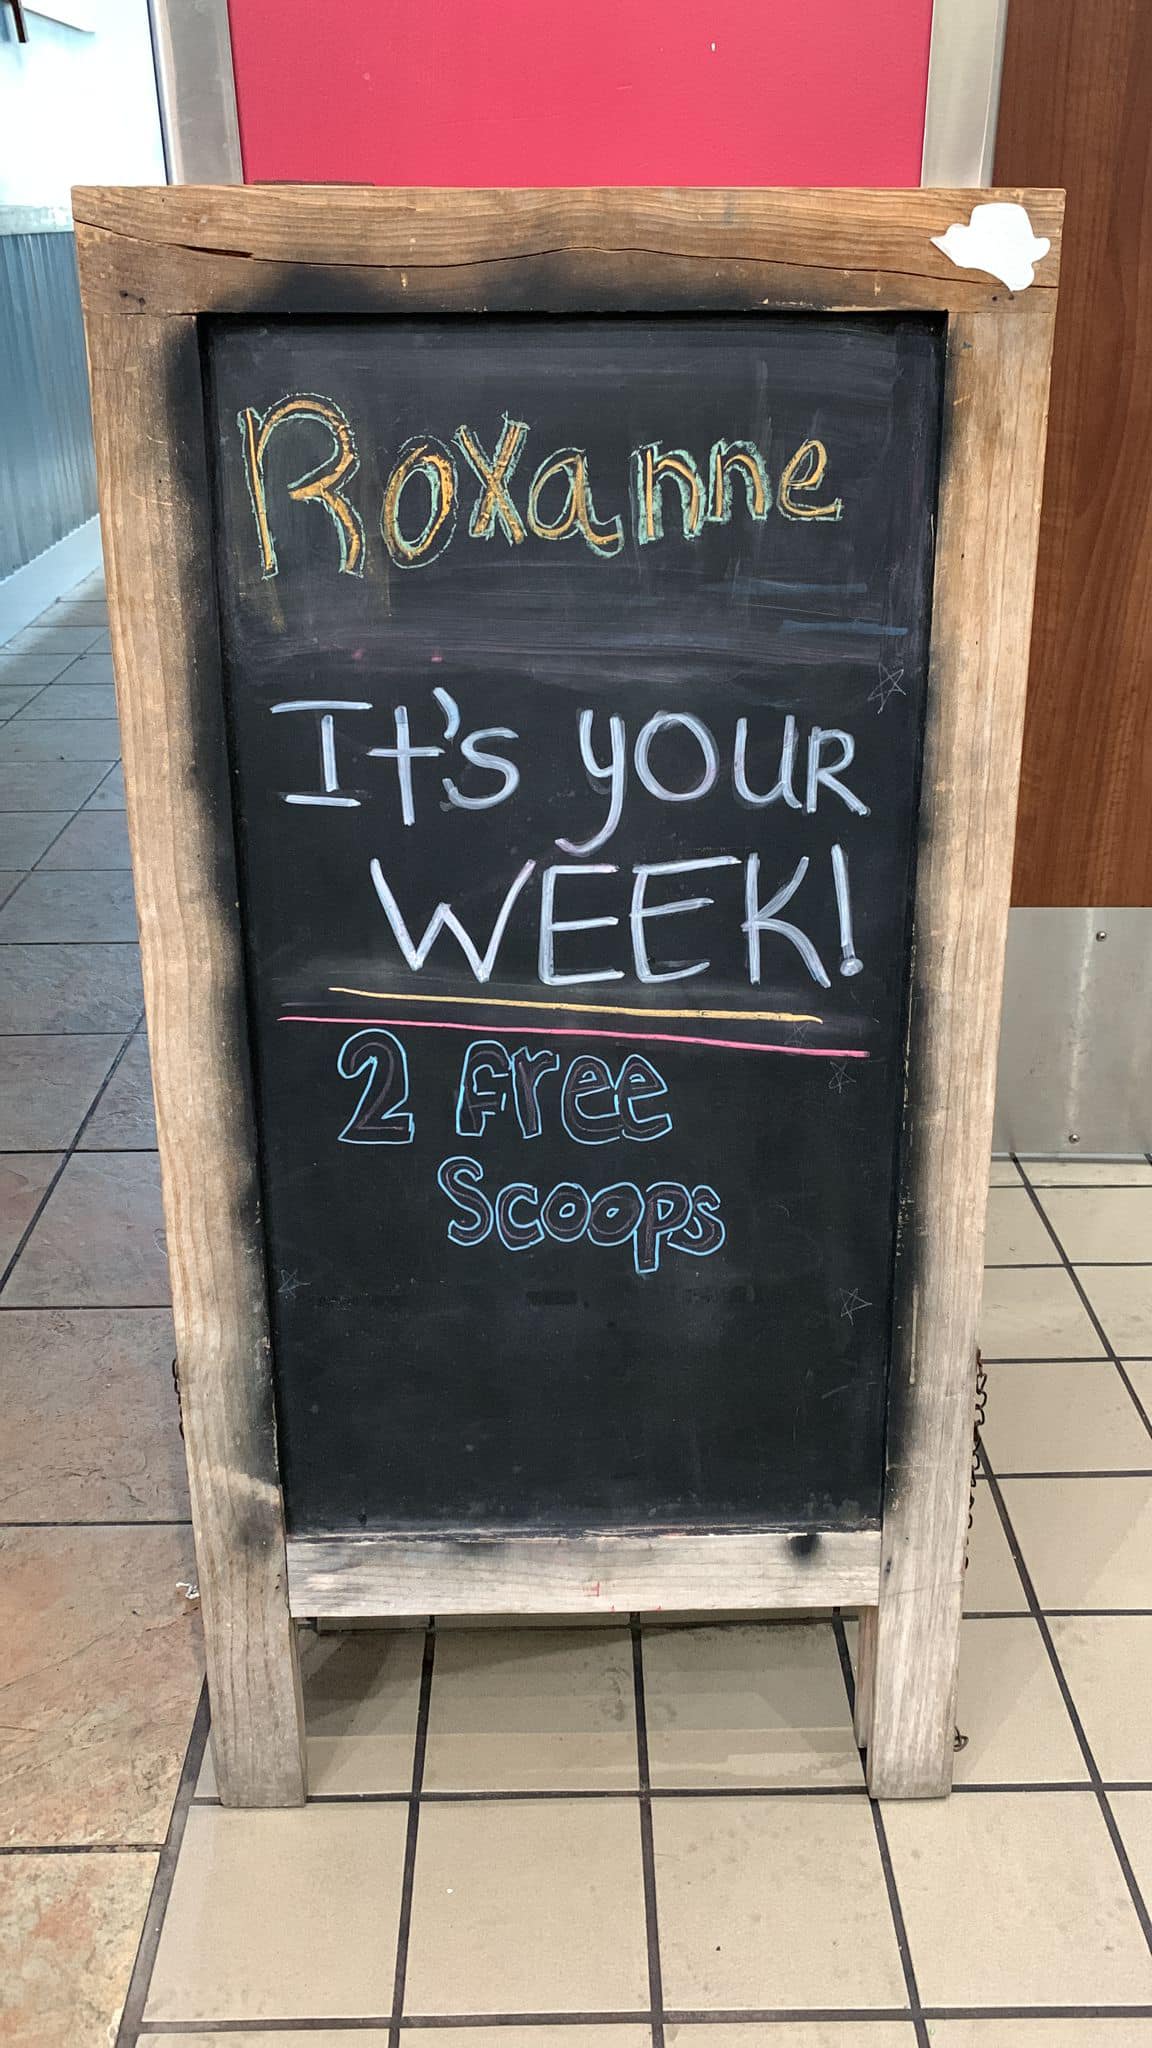 Roxanne
It's your
WEEK!
2 Free
Scoops